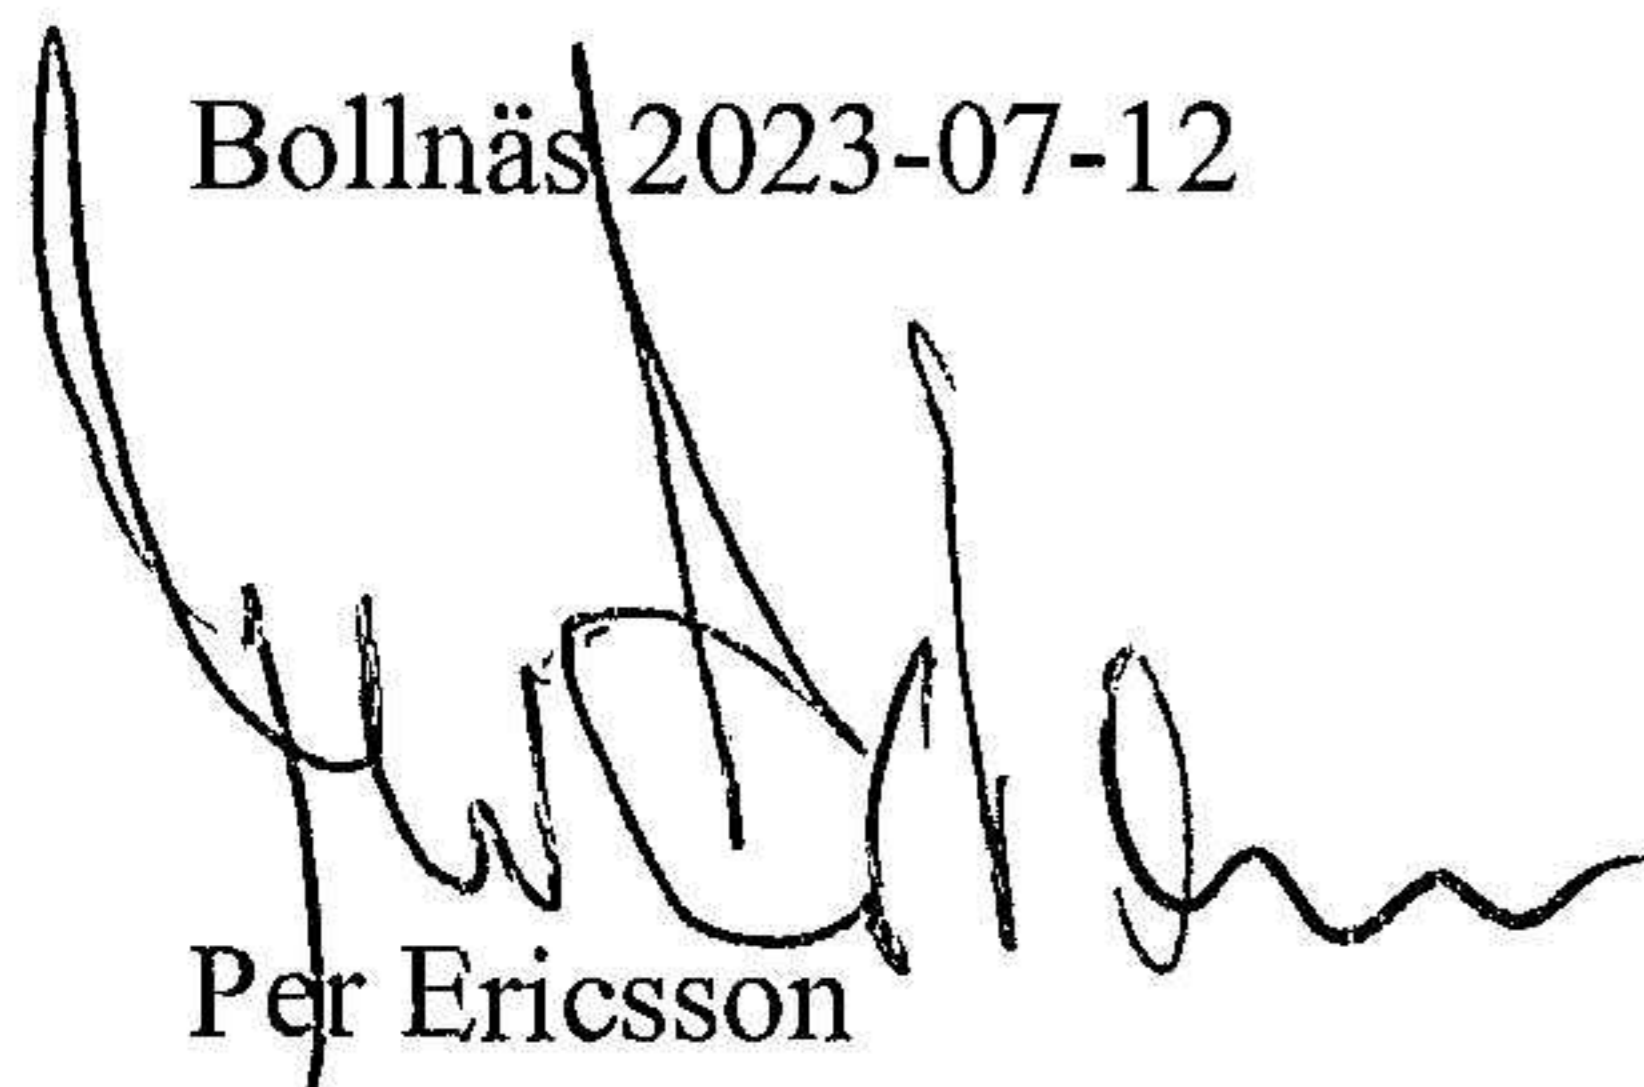 Bollnäs 2023-07-12
Per Ericsson